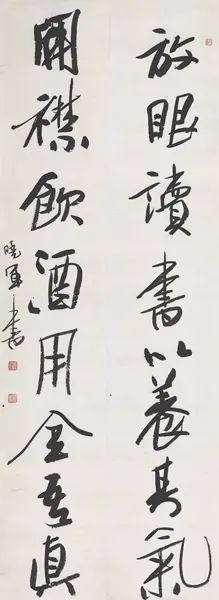 放眼讀書以養其氣
開襟飲酒用全吾真
曉軍書